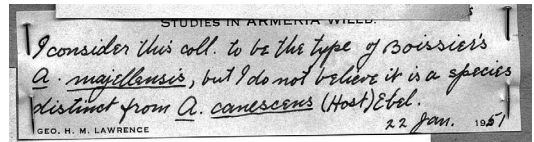 STUDIES IN ARMERIA WILLD.
I consider this coll. to be the type of Boissier's
A. majellensis, but I do not believe it is a species
distinct from A. canescens (Host) Ebel.
22 Jan. 1951
GEO. H. M. LAWRENCE